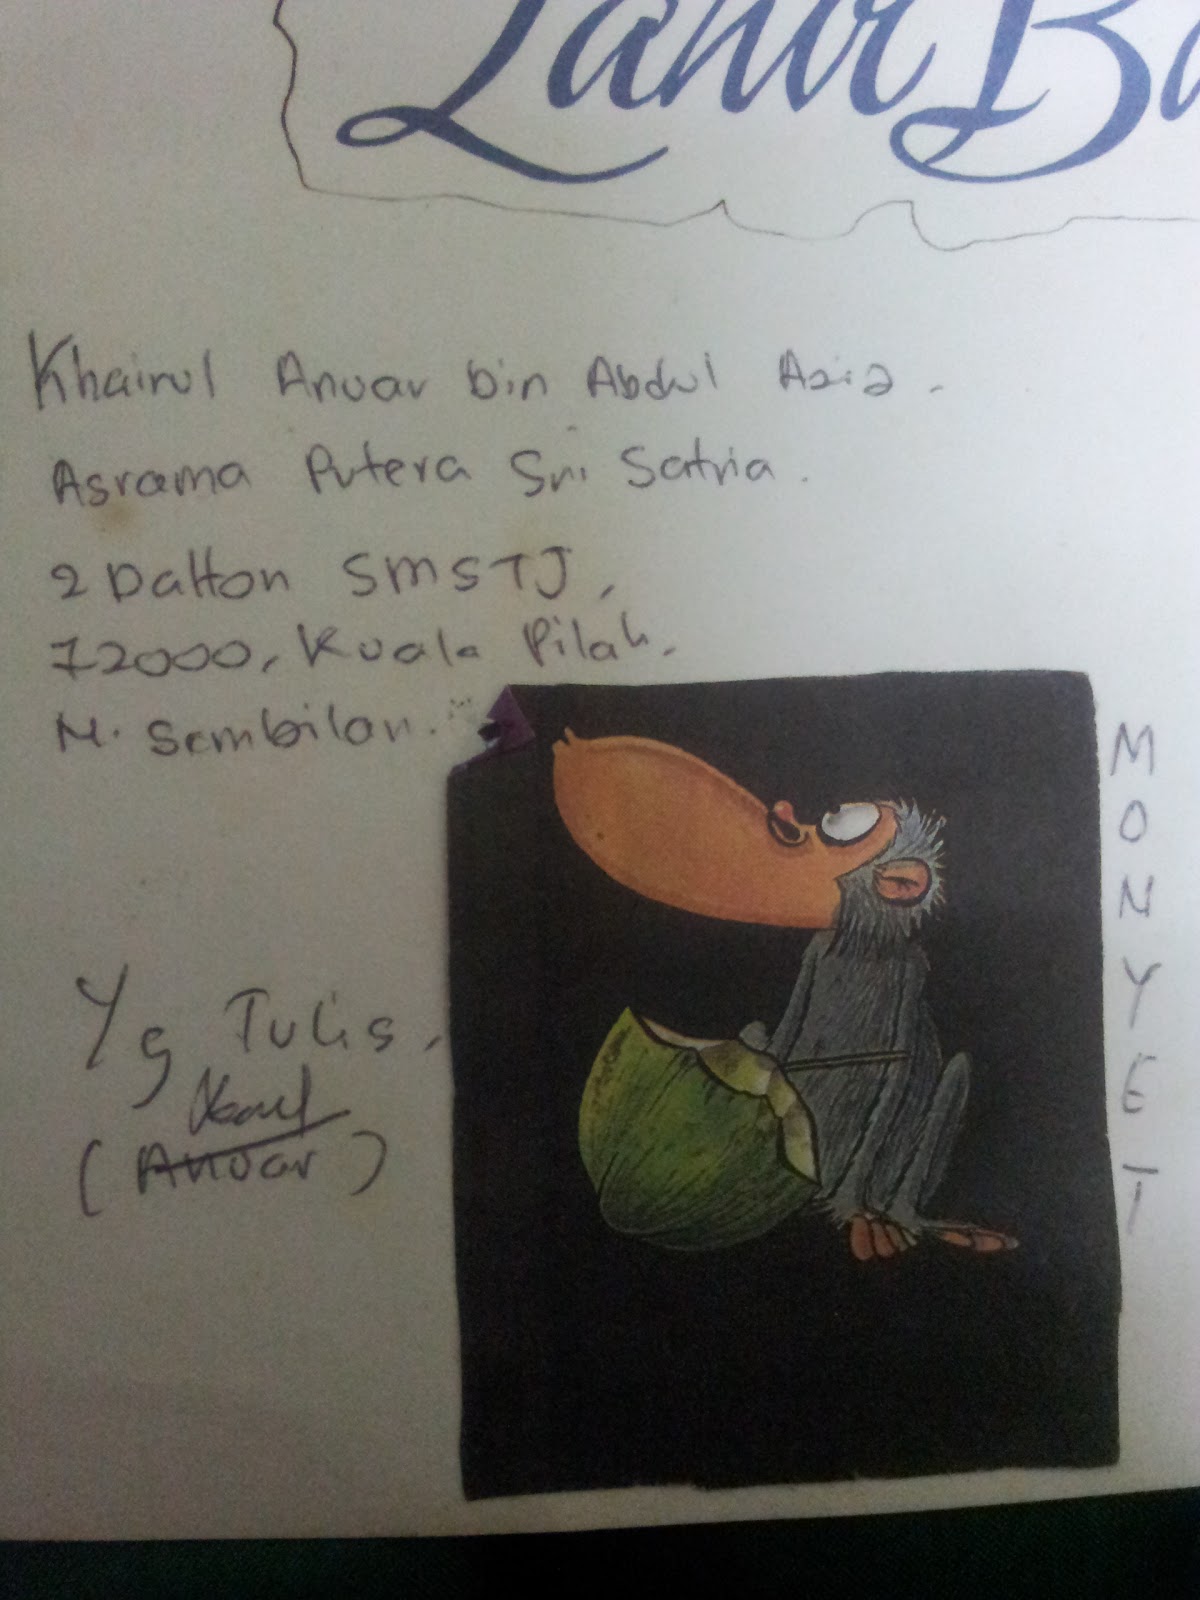 Lahir Ba
Khairul Anuar bin Abdul Aziz.
Asrama Putera Sri Satria.
2 Dalton SMSTJ,
72000, Kuala Pilah,
N. Sembilan.
MONYET
Yg Tulis,
(Anuar)